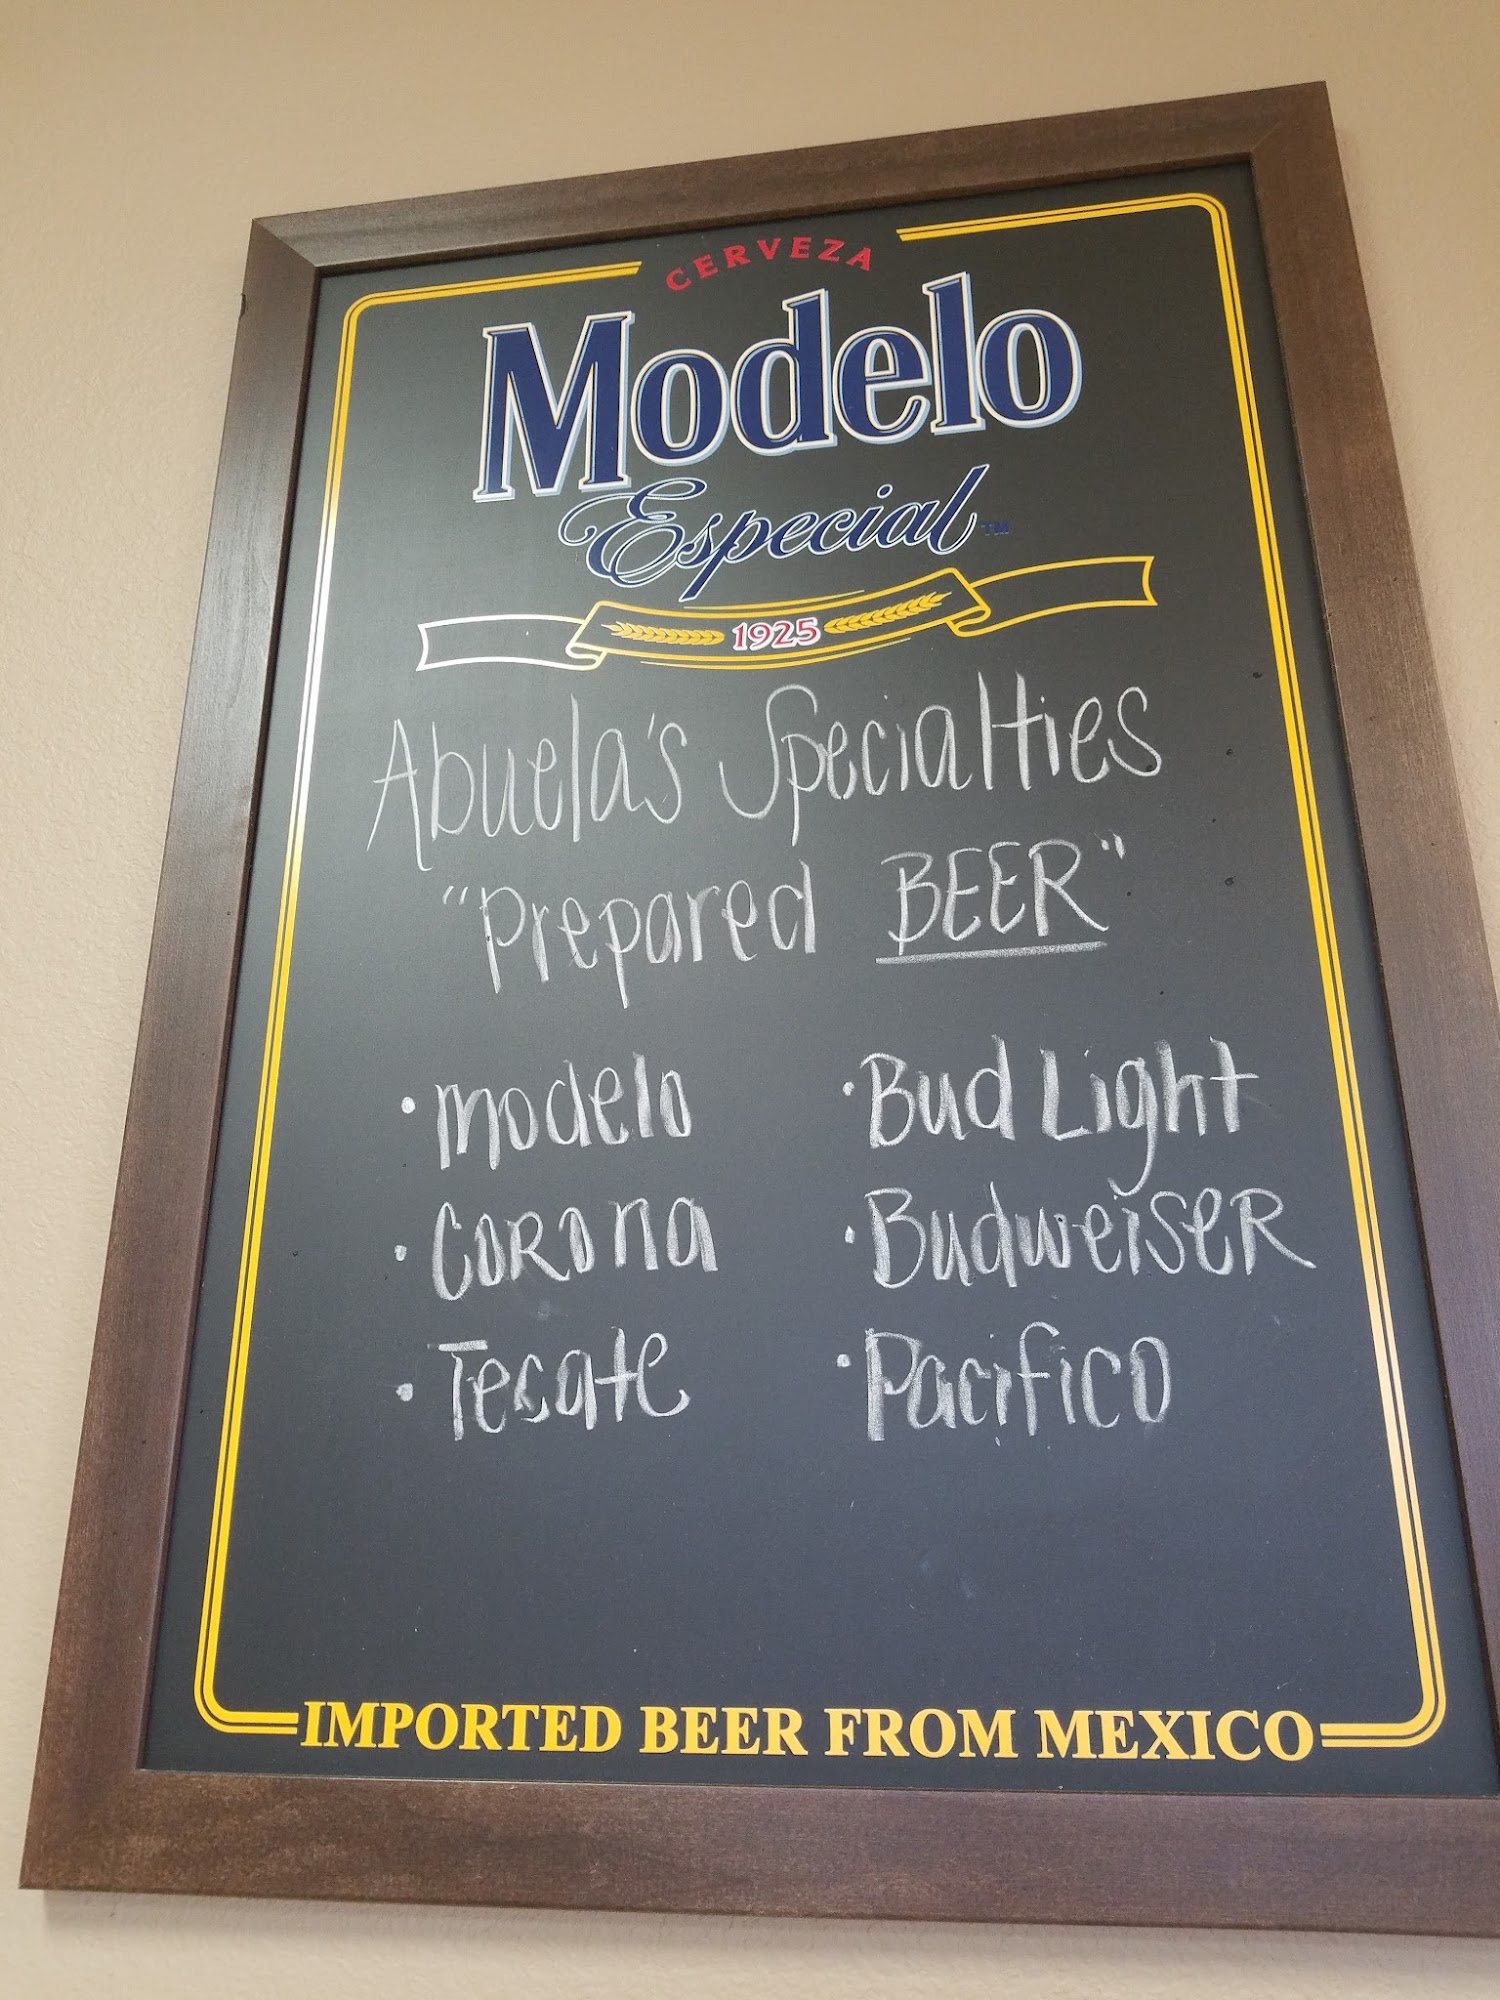 CERVEZA
Modelo
Especial™
1925
Abuela's Specialties
"Prepared BEER"
• Modelo
• Bud Light
• Corona
• Budweiser
• Tecate
• Pacifico
IMPORTED BEER FROM MEXICO